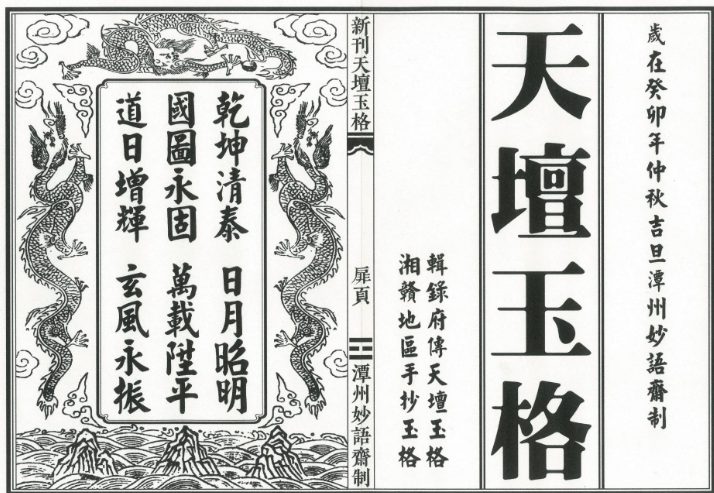 歲在癸卯年仲秋吉旦潭州妙語齋制
天壇玉格
輯錄府傳天壇玉格
湘贛地區手抄玉格
新刊天壇玉格
扉頁
潭州妙語齋制
乾坤清泰 日月昭明
國圖永固 萬載陞平
道日增輝 玄風永振